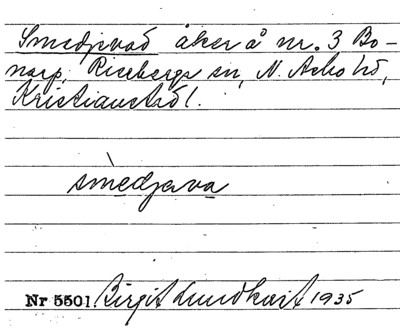 Smedjevad åker å nr. 3 Bo-
narp, Riseberga sn, N. Åsbo hd,
Kristianstad l.
smedjeva
Nr 5501 Birgit Lundkvist 1935